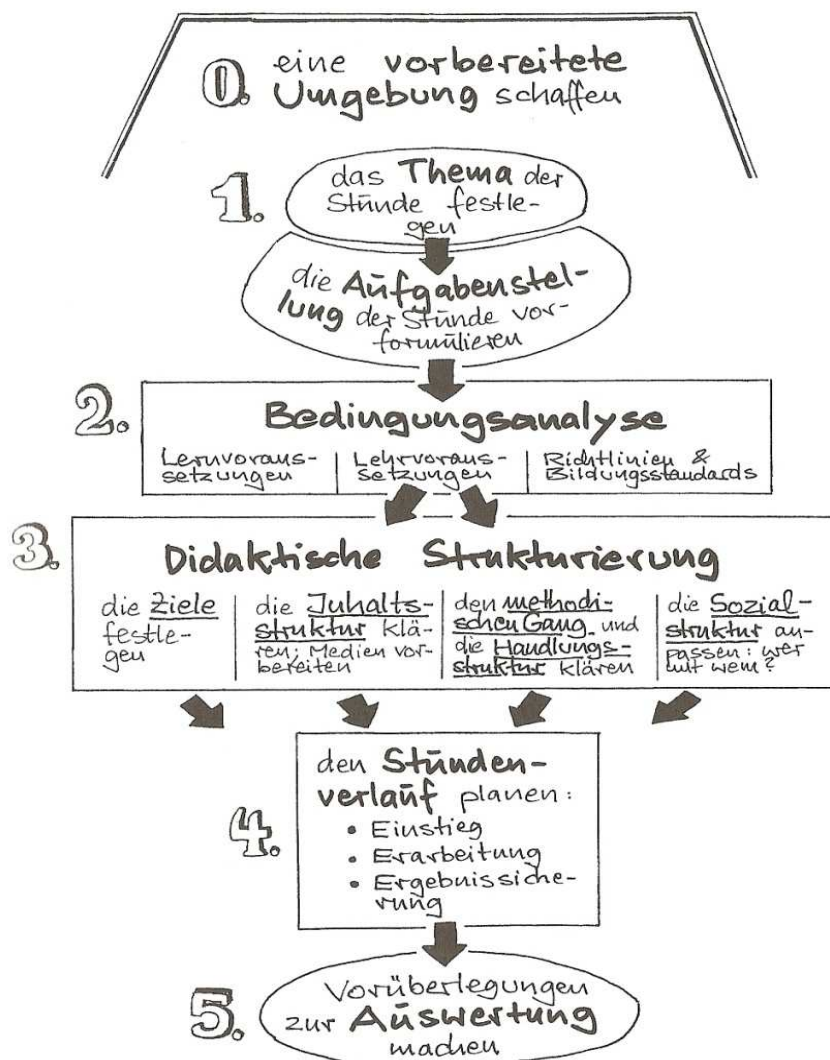 0. eine vorbereitete
Umgebung schaffen
1. das Thema der
Stunde festle-
gen
die Aufgabenstel-
lung der Stunde vor-
formulieren
2. Bedingungsanalyse
Lernvoraus-
setzungen
Lehrvoraus-
setzungen
Richtlinien &
Bildungsstandards
3. Didaktische Strukturierung
die Ziele
festle-
gen
die Inhalts-
struktur klä-
ren; Medien vor-
bereiten
den methodi-
schen Gang und
die Handlungs-
struktur klären
die Sozial-
struktur an-
passen: wer
mit wem?
4. den Stunden-
verlauf planen:
• Einstieg
• Erarbeitung
• Ergebnissiche-
rung
5. Vorüberlegungen
zur Auswertung
machen